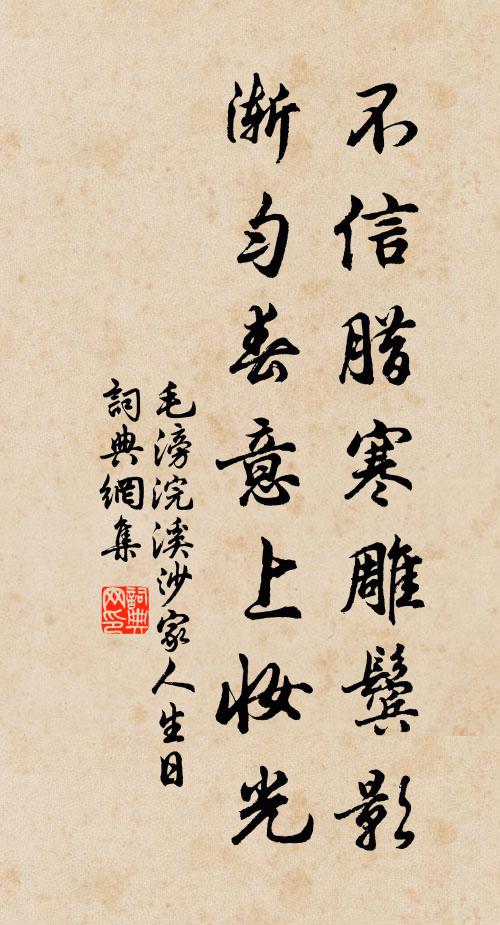 不信腊寒雕鬓影
渐匀春意上妆光
毛滂浣溪沙家人生日
詞典網集
詞典网印